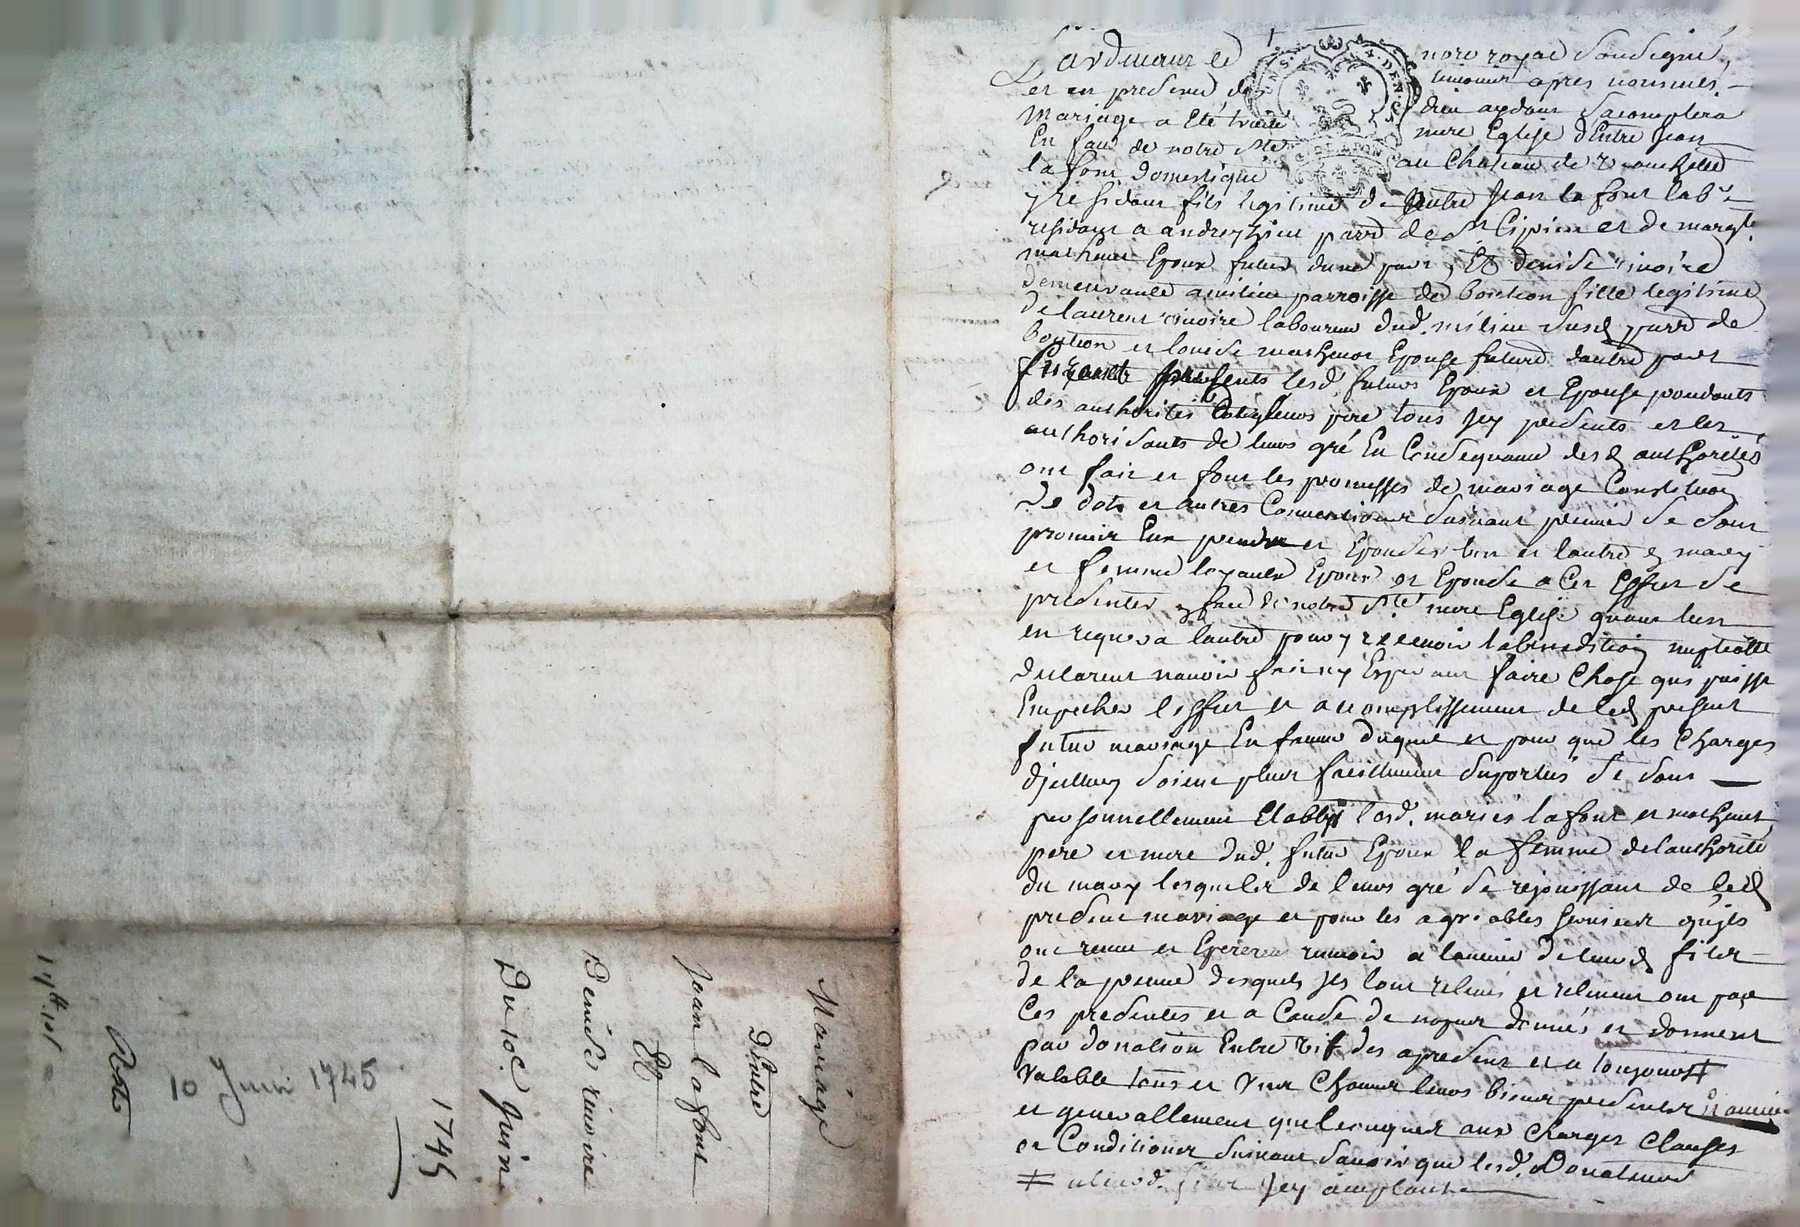 Pardevant le nore royal Soussigné
et en presence des temoins apres nommés
Mariage a été traité dieu aydant Sacomplira
En face de notre Ste mere Eglise d'Entre Jean
la font domestique au Chateau de
y residant fils legitime de autre Jean la font labr
residant a parre de St et de margte
Epoux futur dune part, Et denise rivoire
demeurante a milieu parroisse de boission fille legitime
de laurent rivoire laboureur dud. milieu susd parre de
boission et louise Epouse future dautre part
presents lesd. futurs Epoux et Epouse
des authorités leurs pere tous Jcy presents et les
authorisants de leurs gré En Consequance desd authorités
ont fait et font les promesses de mariage Constitution
de dots et autres Conventions Suivant premier Se Sont
promis Eux prendre et Epouser lun et lautre en mary
et femme loyaulx Epoux et Epouse a Cet Effet Se
presenter en face de notre Ste mere Eglise quant lun
en requera lautre pour y recevoir la benediction nuptialle
declarent navoir fait ny faire Chose qui puisse
Empecher leffet et accomplissement de led present
futur mariage En faveur duquel et pour que les Charges
dicelluy Soient plus facillement Suportés Se Sont
personnellement Etablis lesd. mariés lafont et
pere et mere dud. futur Epoux la femme de lauthorité
du mary lesquels de leurs gré Se rejouissant de led
present mariage et pour les agreables Services quils
ont receu et Esperent recevoir a lavenir de leurd fils
de la preuve desquels Jls lont relevé et relevent ont par
Ces presentes et a Cause de nopces donnés et donnent
par donation Entre vif des apresent et a toujours #
Valable tous et Un Chacun leurs biens presents
et generallement quelconques aux Charges Clauses
et Conditions Suivant Savoir que lesd. Donateurs
# fils Jcy acceptant
Mariage
D'Entre
Jean lafont
Et
Denise rivoire
Du 10e Juin
1745
10 Juin 1745